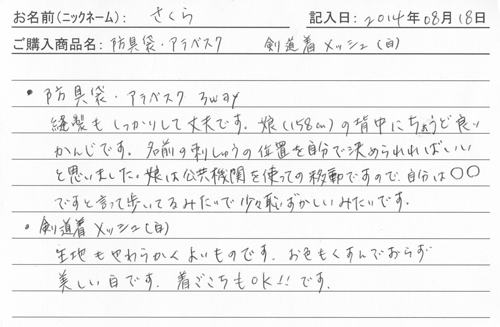 お名前(ニックネーム): さくら 記入日: 2014年08月18日
ご購入商品名: 防具袋・アラベスク 剣道着メッシュ(白)
・防具袋・アラベスク 3way
縫製もしっかりして丈夫です。娘(158cm)の背中にちょうど良い
かんじです。名前の刺しゅうの位置を自分で決められればいい
と思いました。娘は公共機関を使っての移動ですので、自分は○○
ですと言って歩いてるみたいで少々恥ずかしいみたいです。
・剣道着メッシュ(白)
生地もやわらかくよいものです。お色もくすんでおらず
美しい白です。着ごこちもOK!!です。